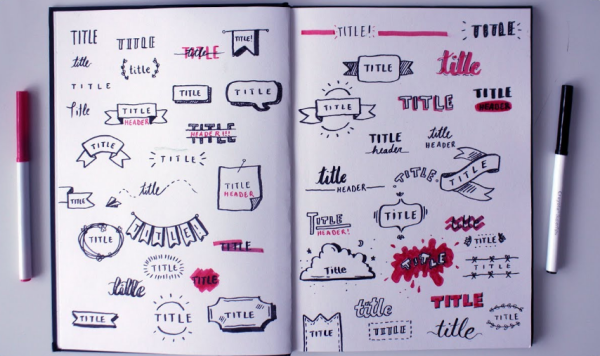 TITLE
TITLE
TITLE
TITLE!
title
title
TITLE
TITLE
TITLE
Title
TITLE
HEADER
TITLE
HEADER!!!
TITLE
TITLE
title
TITLE
HEADER
TITLE
TITLE
TITLE!
TITLE
TITLE
TITLE
title
TITLE
TITLE
TITLE
TITLE!
TITLE
TITLE
title
TITLE
TITLE
TITLE
HEADER
TITLE
header
TITLE
HEADER
title
HEADER
TITLE
TITLE
TITLE
TITLE
HEADER!
TITLE
Title
TITLE
TITLE
title
TITLE
TITLE
TITLE
title
TITLE